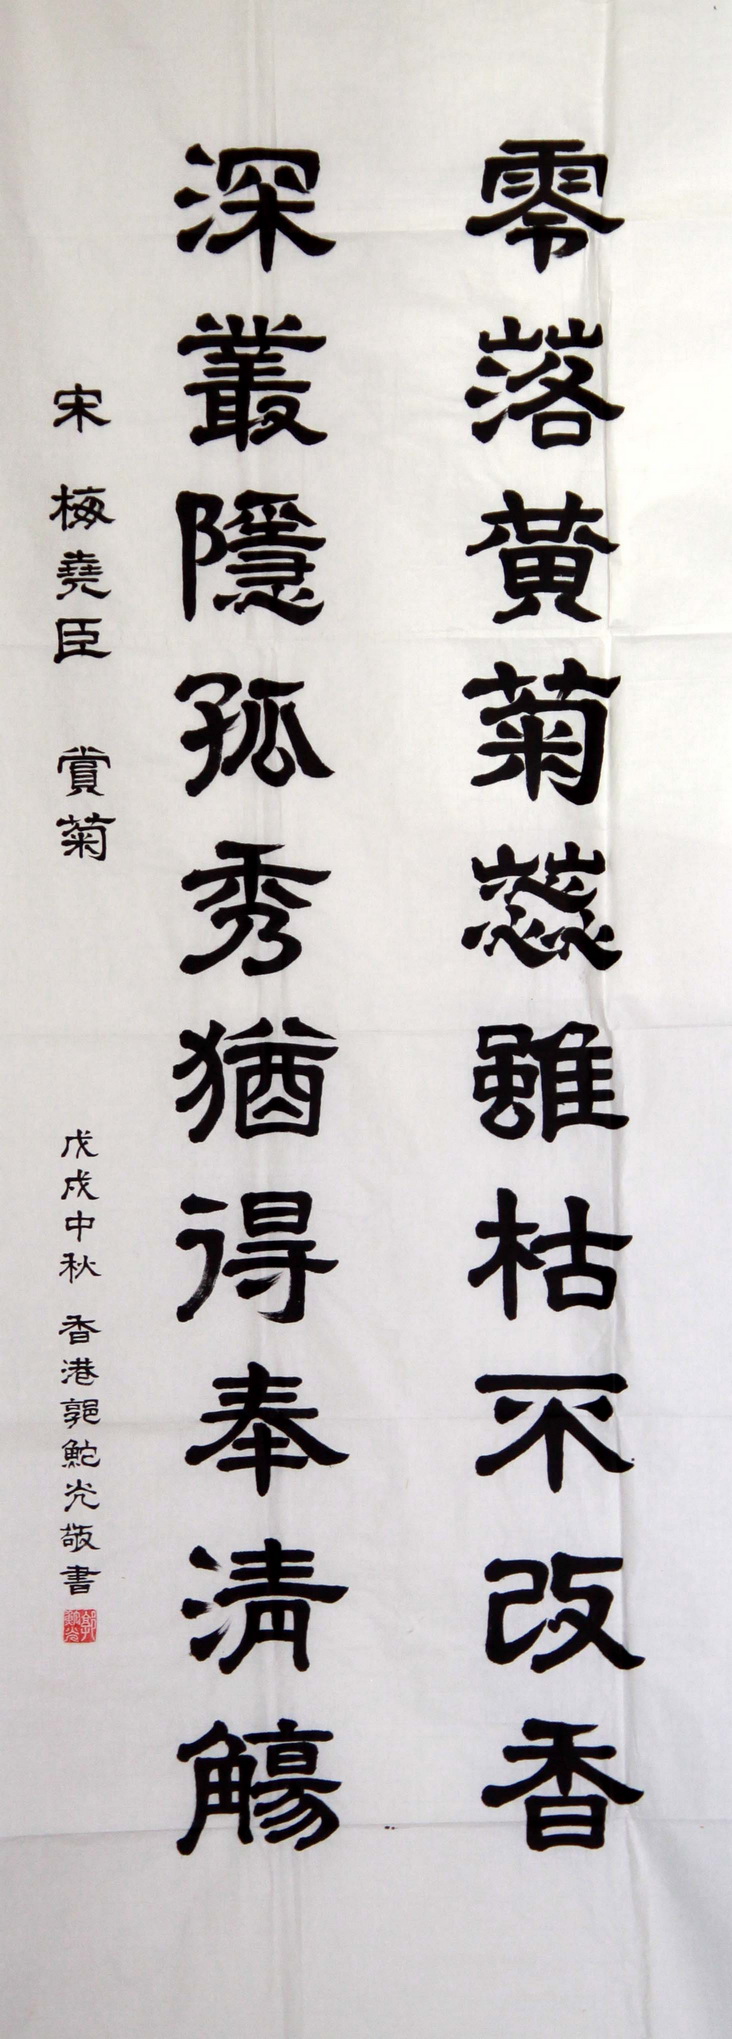 零落黃菊蕊雖枯不改香
深叢隱孤秀猶得奉清觴
宋 梅堯臣 賞菊
戊戌中秋 香港郭鮀光敬書